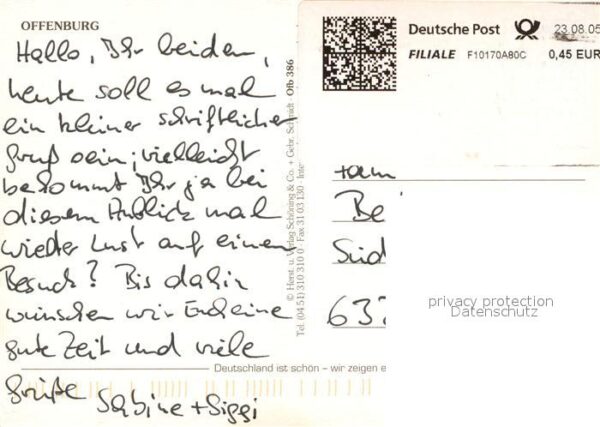 OFFENBURG
Hallo, Ihr beiden,
heute soll es mal
ein kleiner schriftlicher
Gruß sein; vielleicht
bekommt Ihr ja bei
diesem Anblick mal
wieder Lust auf einen
Besuch? Bis dahin
wünschen wir Euch eine
gute Zeit und viele
Grüße Sabine + Siggi
© Herst. u. Verlag Schöning & Co. + Gebr. Schmidt · Ofb 386
Tel. (04 51) 310 310 0 · Fax 31 03 130 · Inte
Deutschland ist schön – wir zeigen e
Deutsche Post
23.08.05
FILIALE F10170A80C 0,45 EUR
Fam
Be
Süd
637
privacy protection
Datenschutz